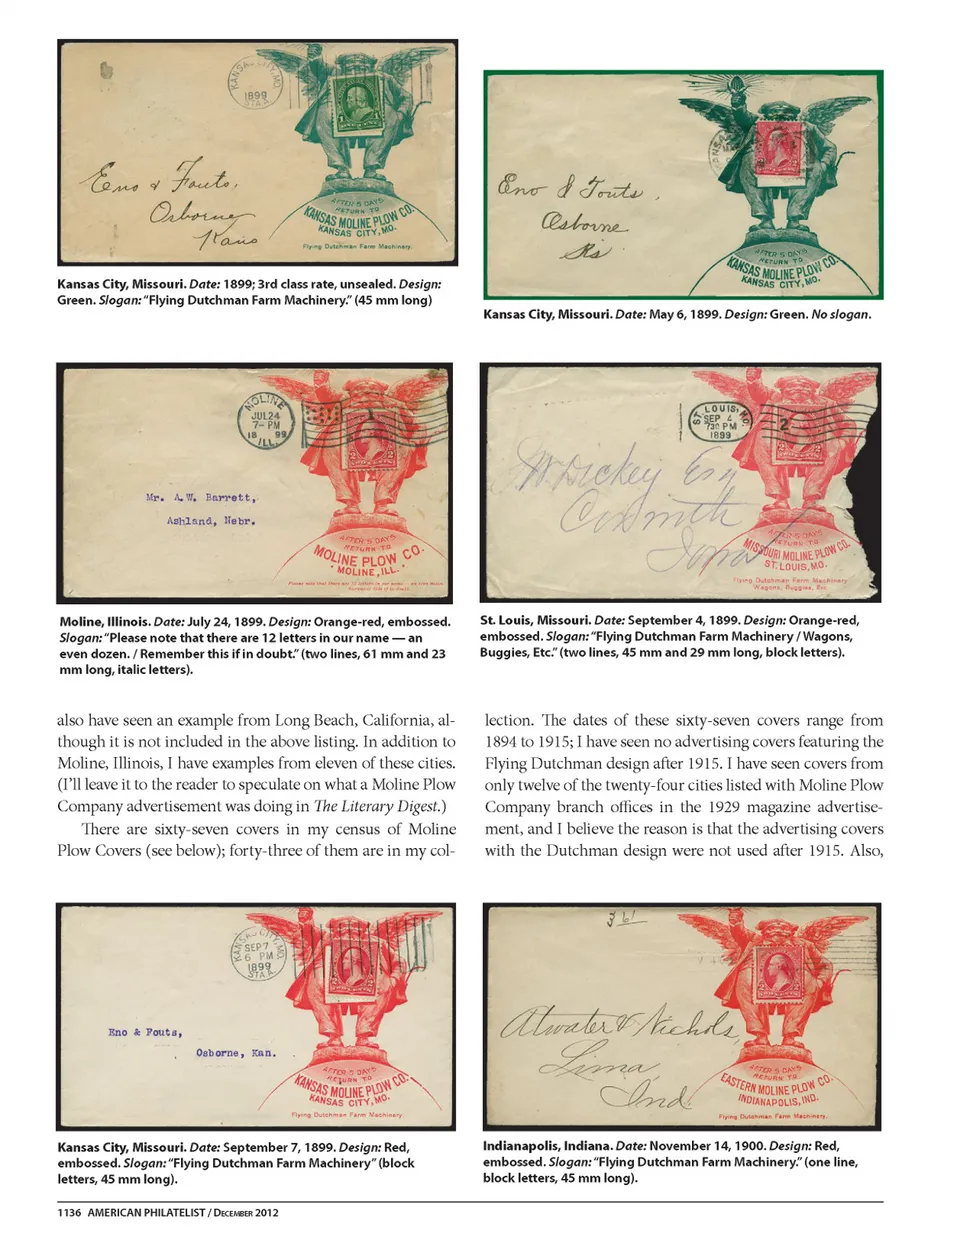 KANSAS CITY, MO.
1899
STA. A.
1
Eno & Fouts,
Osborne
Kans
AFTER 5 DAYS
RETURN TO
KANSAS MOLINE PLOW CO.
KANSAS CITY, MO.
Flying Dutchman Farm Machinery.
Kansas City, Missouri. Date: 1899; 3rd class rate, unsealed. Design:
Green. Slogan: “Flying Dutchman Farm Machinery.” (45 mm long)
Eno & Fouts,
Osborne
Ks
AFTER 5 DAYS
RETURN TO
KANSAS MOLINE PLOW CO.
KANSAS CITY, MO.
Kansas City, Missouri. Date: May 6, 1899. Design: Green. No slogan.
MOLINE
JUL 24
7-PM
18 99
ILL.
Mr. A.W. Barrett,
Ashland, Nebr.
AFTER 5 DAYS
RETURN TO
MOLINE PLOW CO.
MOLINE, ILL.
Please note that there are 12 letters in our name — an even dozen.
Remember this if in doubt.
Moline, Illinois. Date: July 24, 1899. Design: Orange-red, embossed.
Slogan: “Please note that there are 12 letters in our name — an
even dozen. / Remember this if in doubt.” (two lines, 61 mm and 23
mm long, italic letters).
ST. LOUIS, MO.
SEP 4
730 PM
1899
2
Dickey Esq
Iowa
AFTER 5 DAYS
RETURN TO
MISSOURI MOLINE PLOW CO.
ST. LOUIS, MO.
Flying Dutchman Farm Machinery
Wagons, Buggies, Etc.
St. Louis, Missouri. Date: September 4, 1899. Design: Orange-red,
embossed. Slogan: “Flying Dutchman Farm Machinery / Wagons,
Buggies, Etc.” (two lines, 45 mm and 29 mm long, block letters).
also have seen an example from Long Beach, California, al-
though it is not included in the above listing. In addition to
Moline, Illinois, I have examples from eleven of these cities.
(I’ll leave it to the reader to speculate on what a Moline Plow
Company advertisement was doing in The Literary Digest.)
There are sixty-seven covers in my census of Moline
Plow Covers (see below); forty-three of them are in my col-
lection. The dates of these sixty-seven covers range from
1894 to 1915; I have seen no advertising covers featuring the
Flying Dutchman design after 1915. I have seen covers from
only twelve of the twenty-four cities listed with Moline Plow
Company branch offices in the 1929 magazine advertise-
ment, and I believe the reason is that the advertising covers
with the Dutchman design were not used after 1915. Also,
KANSAS CITY, MO.
SEP 7
6 PM
1899
STA. A.
Eno & Fouts,
Osborne, Kan.
AFTER 5 DAYS
RETURN TO
KANSAS MOLINE PLOW CO.
KANSAS CITY, MO.
Flying Dutchman Farm Machinery
Kansas City, Missouri. Date: September 7, 1899. Design: Red,
embossed. Slogan: “Flying Dutchman Farm Machinery” (block
letters, 45 mm long).
361
Atwater & Nichols,
Lima,
Ind.
AFTER 5 DAYS
RETURN TO
EASTERN MOLINE PLOW CO.
INDIANAPOLIS, IND.
Flying Dutchman Farm Machinery.
Indianapolis, Indiana. Date: November 14, 1900. Design: Red,
embossed. Slogan: “Flying Dutchman Farm Machinery.” (one line,
block letters, 45 mm long).
1136 AMERICAN PHILATELIST / DECEMBER 2012